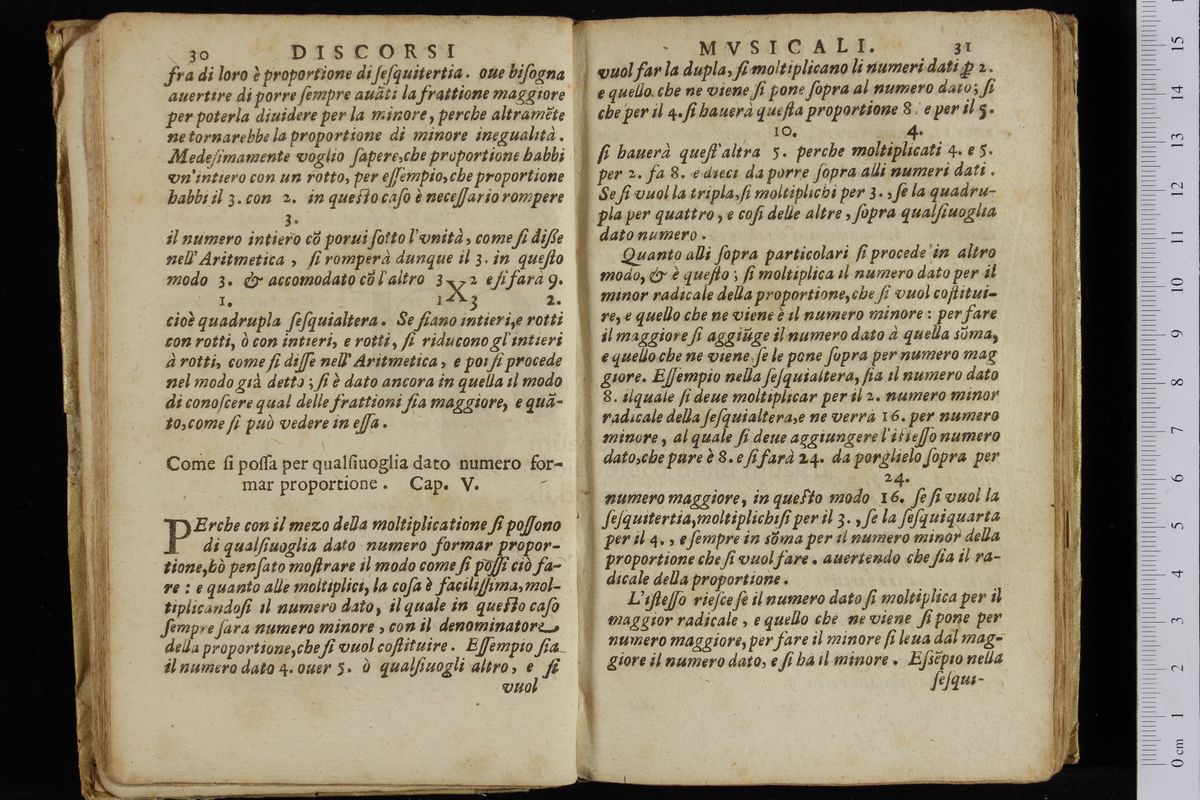 30 DISCORSI
fra di loro è proportione di sesquitertia. oue bisogna
auertire di porre sempre auãti la frattione maggiore
per poterla diuidere per la minore, perche altramẽte
ne tornarebbe la proportione di minore inegualità.
Medesimamente voglio sapere,che proportione habbi
vn'intiero con un rotto, per essempio,che proportione
habbi il 3. con 2. in questo caso è necessario rompere
3.
il numero intiero cõ porui sotto l'vnità, come si disse
nell'Aritmetica, si romperà dunque il 3. in questo
modo 3. & accomodato cõ l'altro 3 X 2 e si farà 9.
1. 1 3 2.
cioè quadrupla sesquialtera. Se siano intieri,e rotti
con rotti, ò con intieri, e rotti, si riducono gl'intieri
à rotti, come si disse nell'Aritmetica, e poi si procede
nel modo già detto; si è dato ancora in quella il modo
di conoscere qual delle frattioni sia maggiore, e quã-
to,come si può vedere in essa.
Come si possa per qualsiuoglia dato numero for-
mar proportione. Cap. V.
PErche con il mezo della moltiplicatione si possono
di qualsiuoglia dato numero formar propor-
tione,hò pensato mostrare il modo come si possi ciò fa-
re: e quanto alle moltiplici, la cosa è facilissima,mol-
tiplicandosi il numero dato, il quale in questo caso
sempre sara numero minore, con il denominatore
della proportione,che si vuol costituire. Essempio sia
il numero dato 4. ouer 5. ò qualsiuogli altro, e si
vuol
MVSICALI. 31
vuol far la dupla, si moltiplicano li numeri dati ꝑ 2.
e quello che ne viene si pone sopra al numero dato; si
che per il 4. si hauerà questa proportione 8. e per il 5.
10. 4.
si hauerà quest'altra 5. perche moltiplicati 4. e 5.
per 2. fa 8. e dieci da porre sopra alli numeri dati.
Se si vuol la tripla,si moltiplichi per 3., se la quadru-
pla per quattro, e così delle altre, sopra qualsiuoglia
dato numero.
Quanto alli sopra particolari si procede in altro
modo, & è questo; si moltiplica il numero dato per il
minor radicale della proportione,che si vuol costitui-
re, e quello che ne viene è il numero minore: per fare
il maggiore si aggiũge il numero dato à quella sõma,
e quello che ne viene, se le pone sopra per numero mag
giore. Essempio nella sesquialtera, sia il numero dato
8. ilquale si deue moltiplicar per il 2. numero minor
radicale della sesquialtera,e ne verrà 16. per numero
minore, al quale si deue aggiungere l'istesso numero
dato,che pure è 8. e si farà 24. da porglielo sopra per
24.
numero maggiore, in questo modo 16. se si vuol la
sesquitertia,moltiplichisi per il 3., se la sesquiquarta
per il 4., e sempre in sõma per il numero minor della
proportione che si vuol fare. auertendo che sia il ra-
dicale della proportione.
L'istesso riesce se il numero dato si moltiplica per il
maggior radicale, e quello che ne viene si pone per
numero maggiore, per fare il minore si leua dal mag-
giore il numero dato, e si hà il minore. Essẽpio nella
sesqui-
0 cm 1 2 3 4 5 6 7 8 9 10 11 12 13 14 15